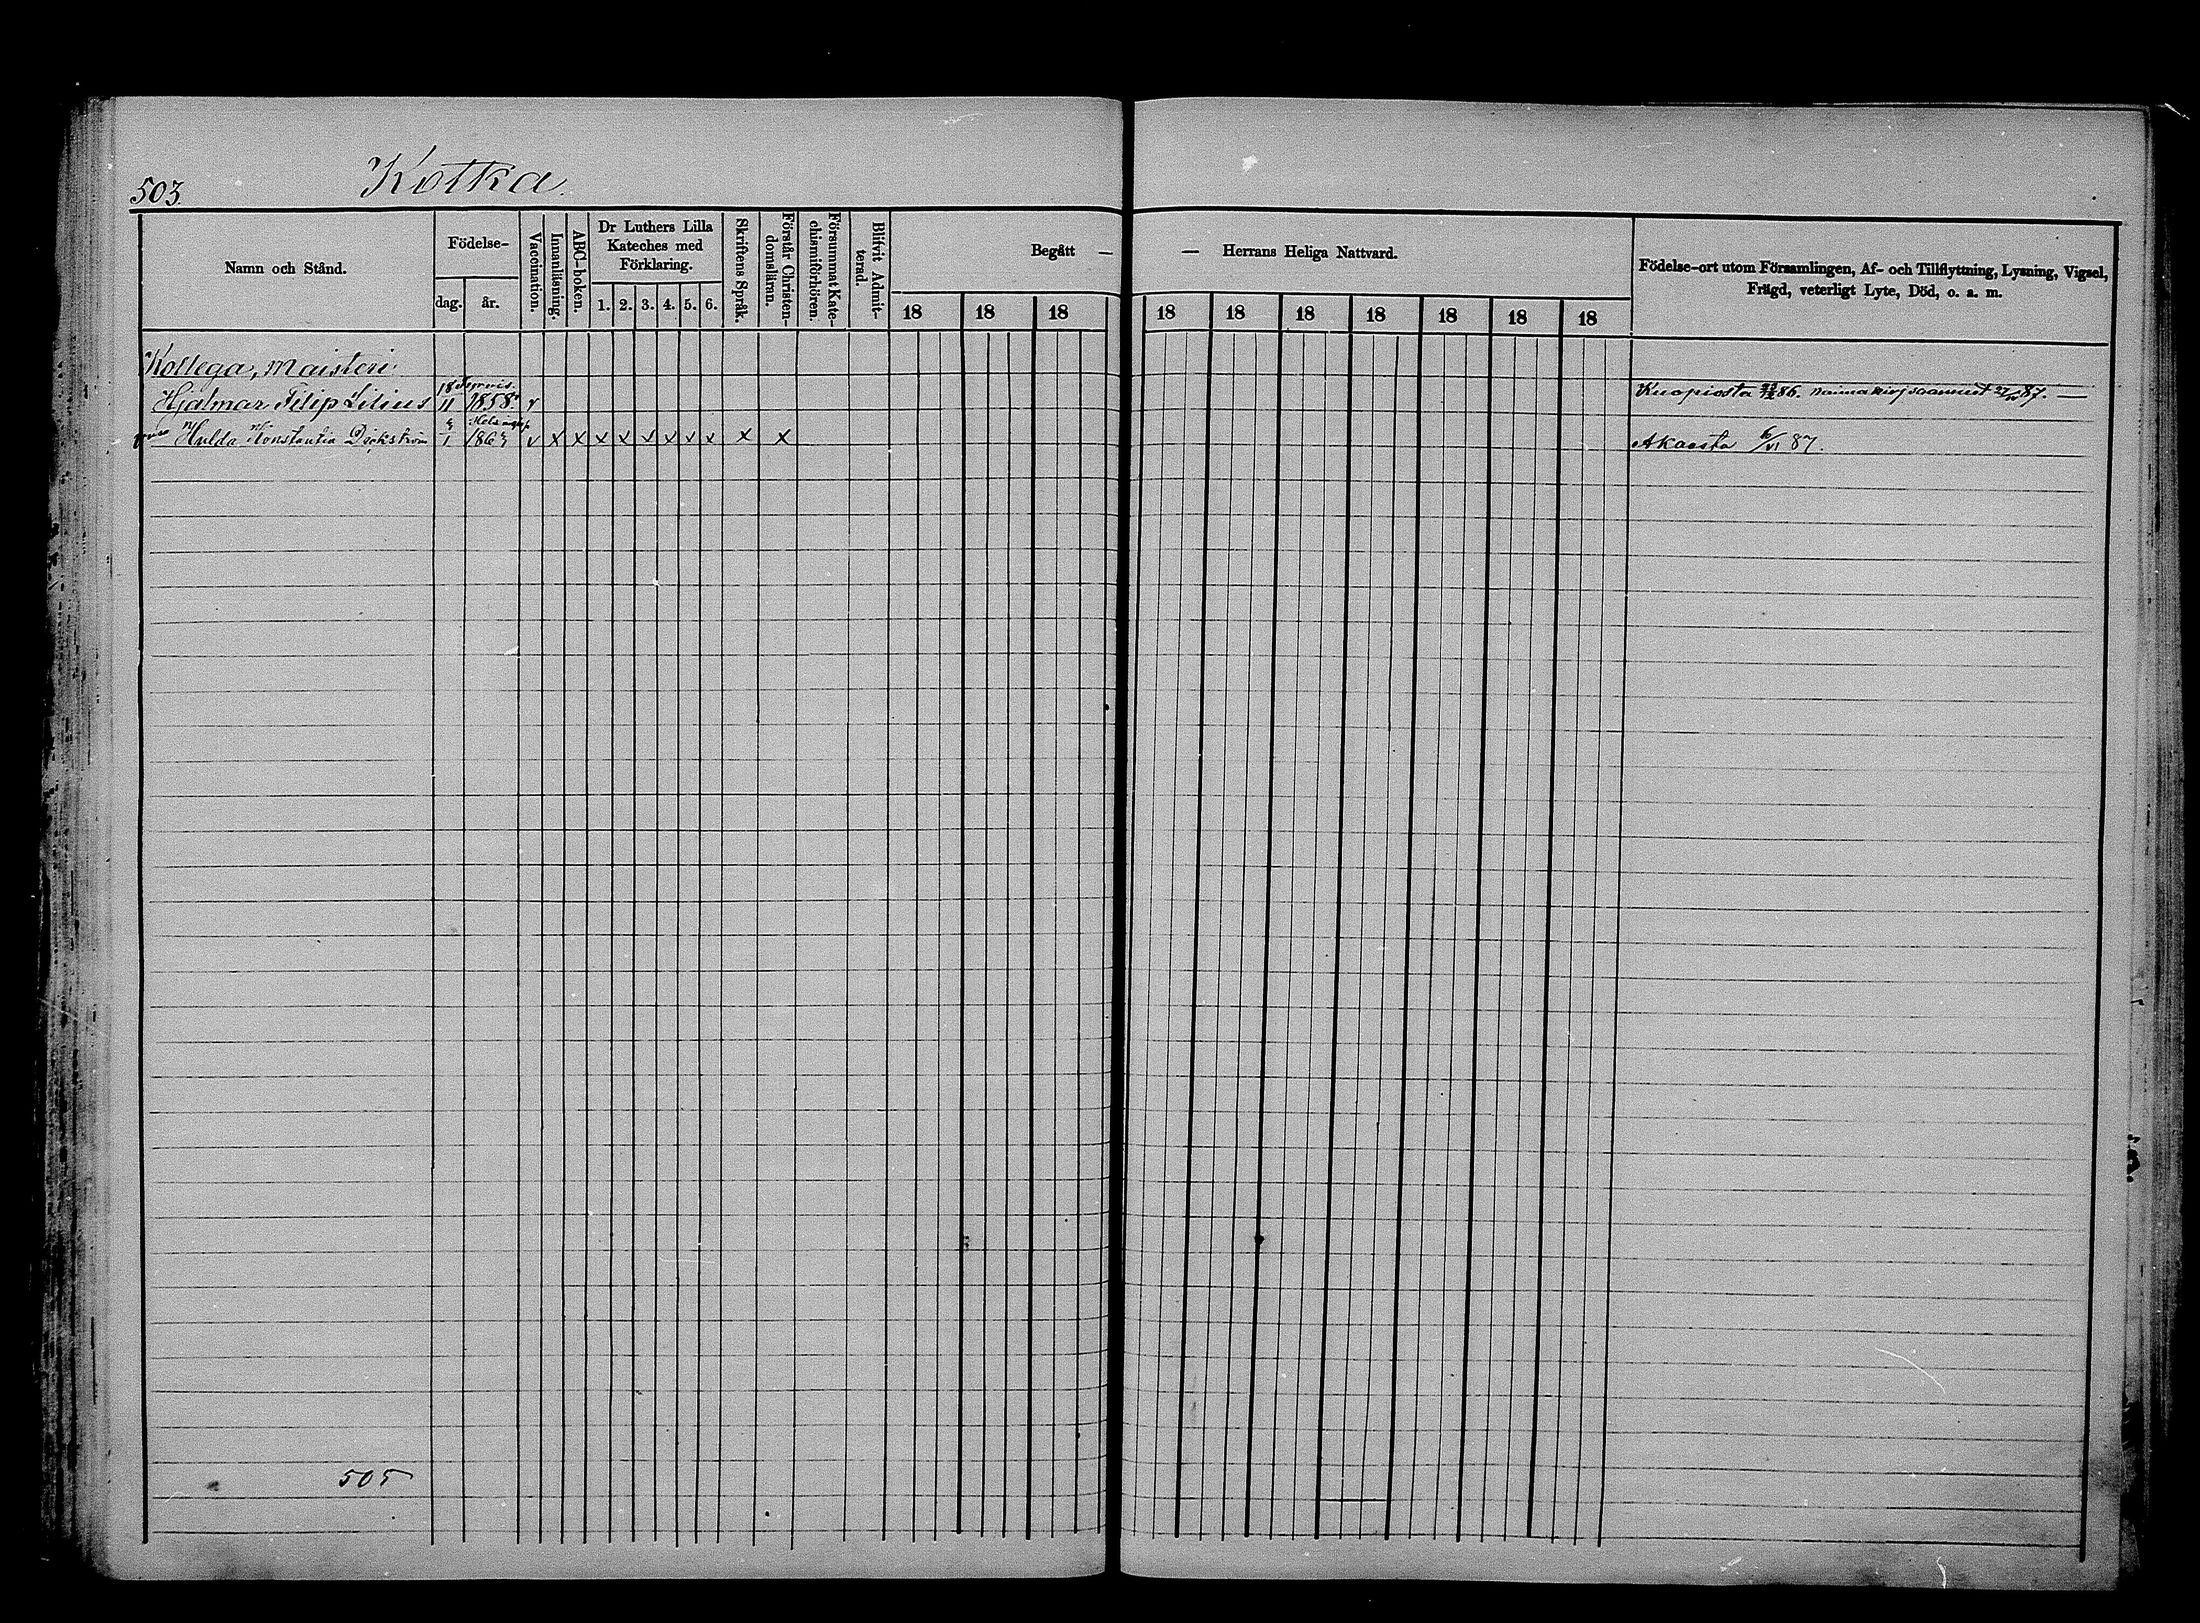 503.
Kotka.
Namn och Stånd.
Födelse-
dag.
år.
Vaccination.
Innanläsning.
ABC-boken.
Dr Luthers Lilla
Kateches med
Förklaring.
1. 2. 3. 4. 5. 6.
Skriftens Språk.
Förstår Christen-
domsläran.
Försummat Kate-
chismiförhören.
Blifvit Admit-
terad.
Begått —
— Herrans Heliga Nattvard.
18 18 18 18 18 18 18 18 18 18
Födelse-ort utom Församlingen, Af- och Tillflyttning, Lysning, Vigsel,
Frägd, veterligt Lyte, Död, o. a. m.
Kollega, Maisteri
Hjalmar Filip Lilius 18/11 1858. v Kuopiosta 86. 87. —
Hulda Konstantia Dickström 1 1863 v x x x x x x x x x x Akaasta 6/VI 87.
505